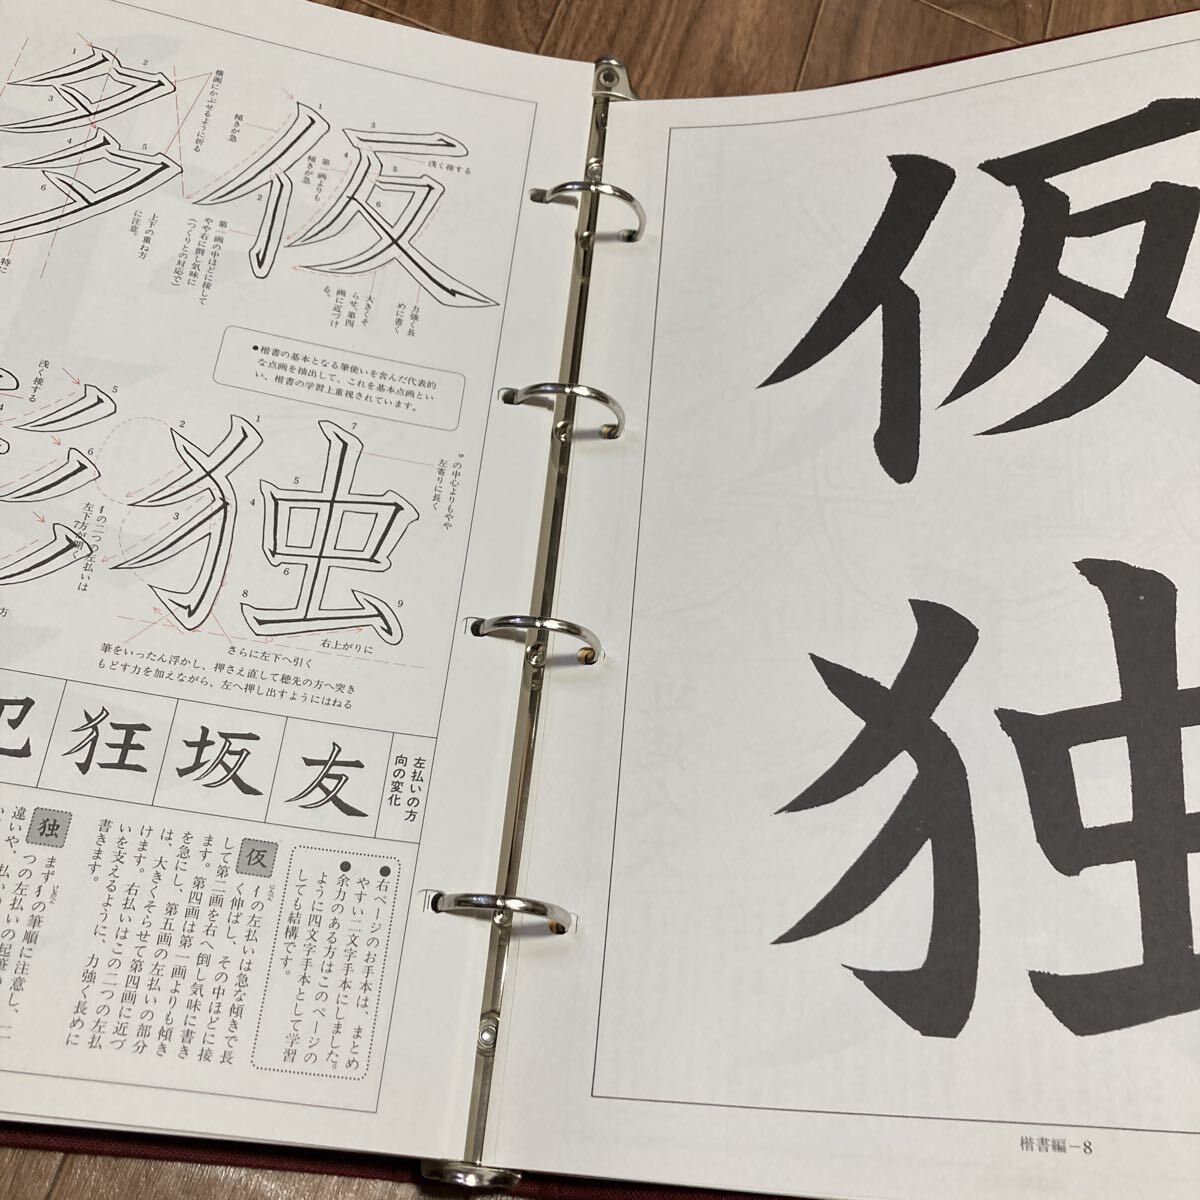 仮
独
楷書編－8
仮
1
2
3
4
5
6
傾きが急
第一画よりも
傾きが急
浅く接する
第一画の中ほどに接して
やや右に倒し気味に
（つくりとの対応で）
大きくそ
らせ、第四
画に近づけ
る。
力強く長
めに書く
1
2
3
4
5
6
横画にかぶせるように折る
上下の重ね方
に注意。
特に
●楷書の基本となる筆使いを含んだ代表的
な点画を抽出して、これを基本点画とい
い、楷書の学習上重視されています。
独
1
2
3
4
5
6
7
8
9
の中心よりもやや
左寄りに長く
犭の二つの左払いは
左下方が開く
さらに左下へ引く
右上がりに
筆をいったん浮かし、押さえ直して穂先の方へ突き
もどす力を加えながら、左へ押し出すようにはねる
浅く接する
4
5
6
7
方
左払いの方
向の変化
友
坂
狂
犯
●右ページのお手本は、まとめ
やすい二文字手本にしました。
●余力のある方はこのページの
ように四文字手本として学習
しても結構です。
仮
イの左払いは急な傾きで長
く伸ばし、その中ほどに接
して第二画を右へ倒し気味に書き
ます。第四画は第一画よりも傾き
を急にし、第五画の左払いの部分
は、大きくそらせて第四画に近づ
けます。右払いはこの二つの左払
いを支えるように、力強く長めに
書きます。
独
まず犭の筆順に注意し、二
つの左払いの起筆の
違いや、払い